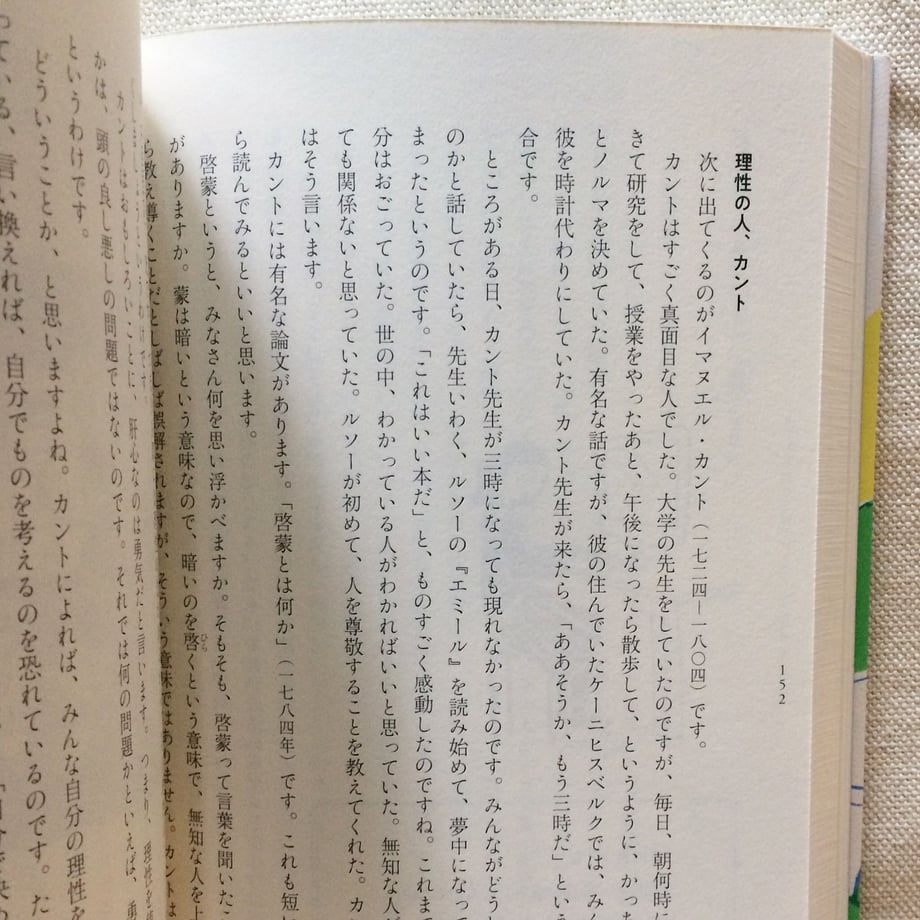 152
理性の人、カント
次に出てくるのがイマヌエル・カント(一七二四―一八〇四)です。
カントはすごく真面目な人でした。大学の先生をしていたのですが、毎日、朝何時に
きて研究をして、授業をやったあと、午後になったら散歩して、というように、かっ
とノルマを決めていた。有名な話ですが、彼の住んでいたケーニヒスベルクでは、みん
彼を時計代わりにしていた。カント先生が来たら、「ああそうか、もう三時だ」とい
合です。
ところがある日、カント先生が三時になっても現れなかったのです。みんながどう
のかと話していたら、先生いわく、ルソーの『エミール』を読み始めて、夢中になっ
まったというのです。「これはいい本だ」と、ものすごく感動したのですね。これま
分はおごっていた。世の中、わかっている人がわかればいいと思っていた。無知な人が
ても関係ないと思っていた。ルソーが初めて、人を尊敬することを教えてくれた。カ
はそう言います。
カントには有名な論文があります。「啓蒙とは何か」(一七八四年)です。これも短い
ら読んでみるといいと思います。
啓蒙というと、みなさん何を思い浮かべますか。そもそも、啓蒙って言葉を聞いたこ
がありますか。蒙は暗いという意味なので、暗いのを啓くという意味で、無知な人を上
ひら
ら教え導くことだとしばしば誤解されますが、そういう意味ではありません。カントは
カントはおもしろいことに、肝心なのは勇気だと言います。つまり、理性を
かは、頭の良し悪しの問題ではないのです。それでは何の問題かといえば、勇
というわけです。
どういうことか、と思いますよね。カントによれば、みんな自分の理性を
っている、言い換えれば、自分でものを考えるのを恐れているのです。た